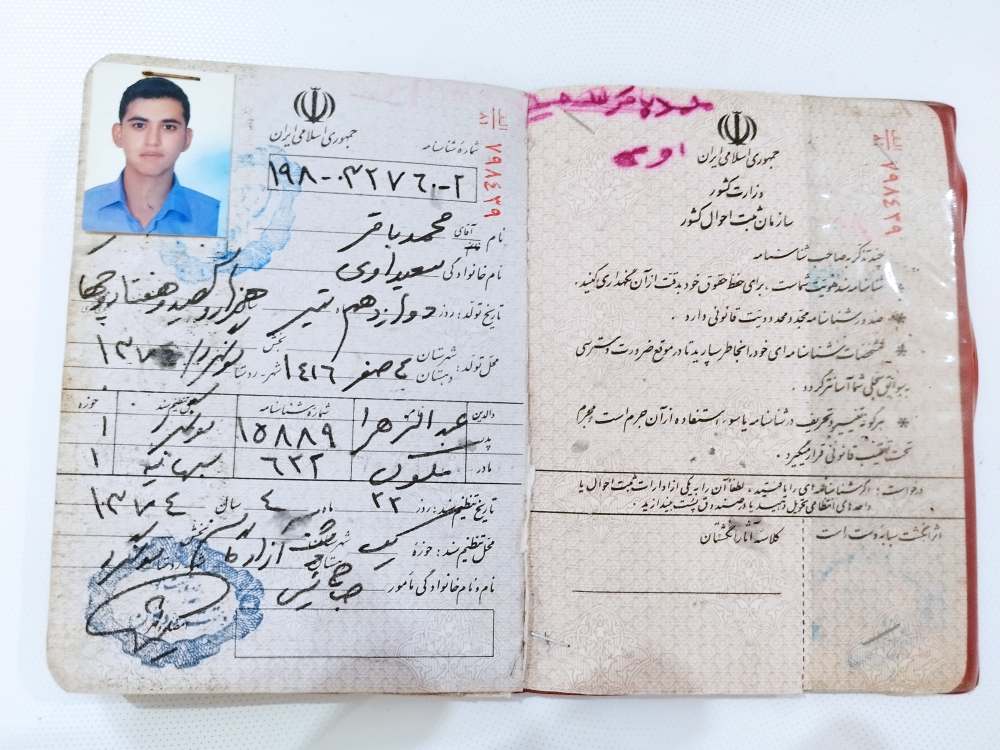 جمهوری اسلامی ایران
شماره شناسنامه
۱۹۸-۰۳۲۷۶۰-۲
۷۹۸۴۳۹
نام آقای محمدباقر
نام خانوادگی سعیداوی
تاریخ تولد: روز دوازدهم تیر هزار و سیصد و هفتاد و چهار
محل تولد: شهرستان دهستان ۴ صفر ۱۴۱۶ شهر- بخش ۱۳۷
والدین نام شماره شناسنامه محل تنظیم سند حوزه
پدر عبدالزهرا ۱۵۸۸۹ ۱
مادر ۶۲۲ ۱
تاریخ تنظیم سند: روز ۲۳ ماه ۴ سال ۱۳۷۴
محل تنظیم سند: حوزه یک شهرستان بخش
نام و نام خانوادگی مأمور
اوی
جمهوری اسلامی ایران
وزارت کشور
سازمان ثبت احوال کشور
۷۹۸۴۳۹
چند تذکر به صاحب شناسنامه
* شناسنامه سند هویت شماست . برای حفظ حقوق خود بدقت از آن نگهداری کنید .
* صدور شناسنامه مجدد محدودیت قانونی دارد .
* مشخصات شناسنامه ای خود را بخاطر بسپارید تا در موقع ضرورت دسترسی
به سوابق سجلی شما آسانتر گردد .
* هرگونه تغییر و تحریف در شناسنامه یا سوء استفاده از آن جرم است و مجرم
تحت تعقیب قانونی قرار میگیرد .
درخواست : اگر شناسنامه ای را یافتید ، لطفاً آن را به یکی از ادارات ثبت احوال یا
واحدهای انتظامی تحویل دهید یا در صندوق پست بیندازید .
اثر انگشت سبابه دست است
کلاسه آثار انگشتان